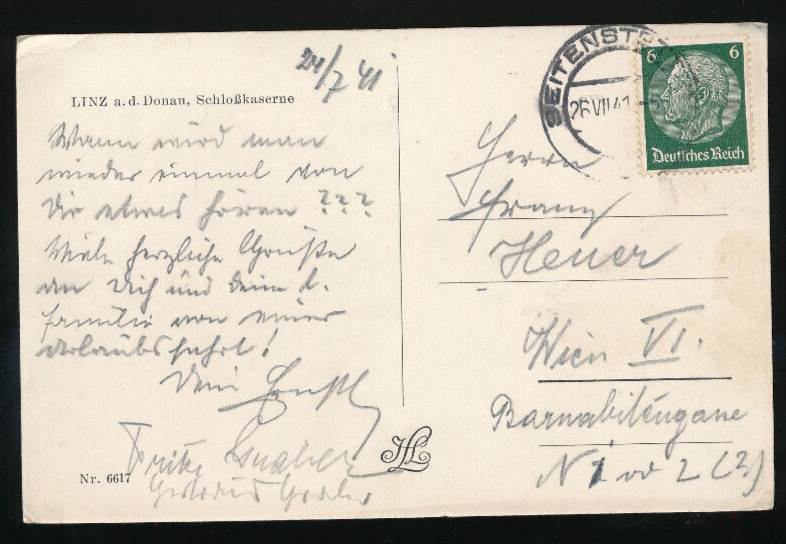 24/7 41
LINZ a. d. Donau, Schloßkaserne
Wann wird man
wieder einmal von
Dir etwas hören ???
Viele herzliche Grüße
an Dich und Deine l.
Familie von einer
Urlaubsfahrt!
Dein
Fritz
Nr. 6617
HL
SEITENSTE
26 VII 41
6 6
Deutsches Reich
Herrn
Franz
Heuer
Wien VI.
Barnabitengasse
N 1 od 2 (3)